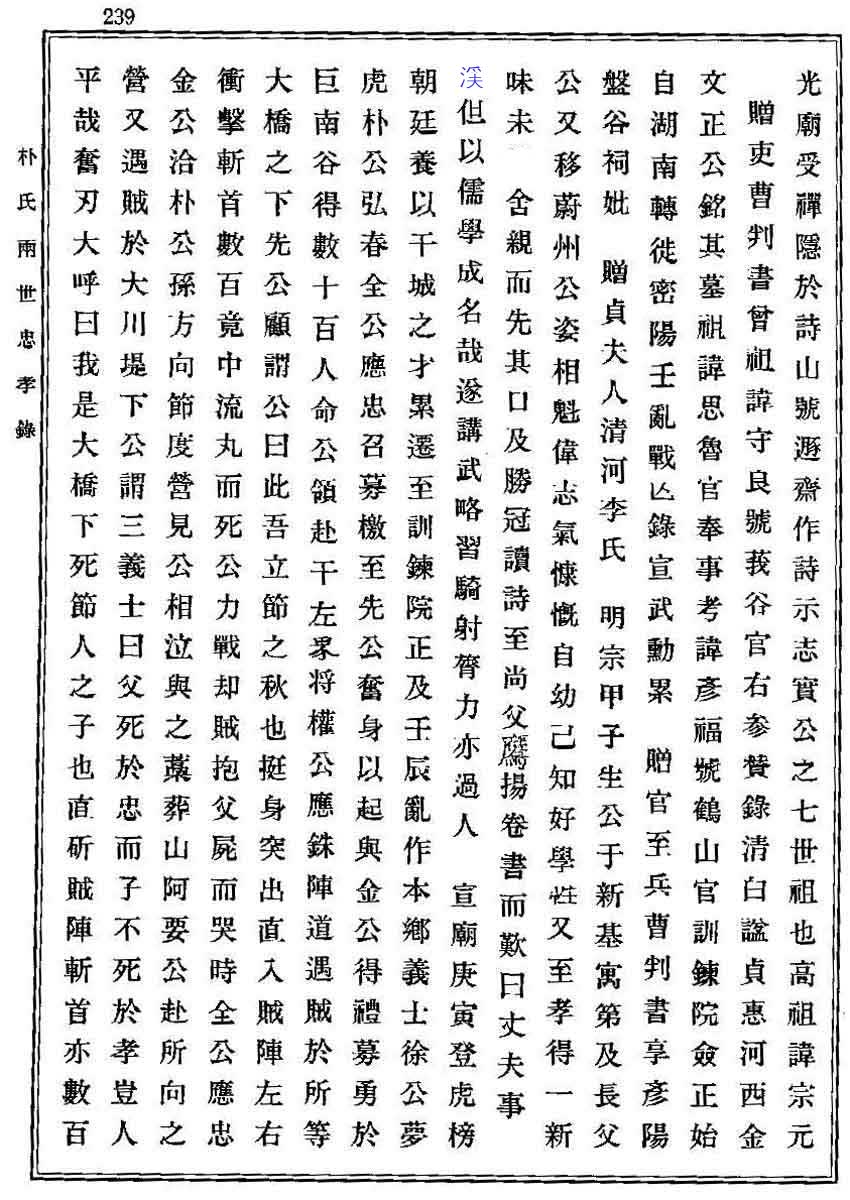 239
光廟受禪隱於詩山號遯齋作詩示志實公之七世祖也高祖諱宗元
贈吏曹判書曾祖諱守良號莪谷官右參贊錄清白諡貞惠河西金
文正公銘其墓祖諱思魯官奉事考諱彥福號鶴山官訓鍊院僉正始
自湖南轉徙密陽壬亂戰亾錄宣武勳累 贈官至兵曹判書享彥陽
盤谷祠妣 贈貞夫人清河李氏 明宗甲子生公于新基寓第及長父
公又移蔚州公姿相魁偉志氣慷慨自幼己知好學性又至孝得一新
味未 舍親而先其口及勝冠讀詩至尚父鷹揚卷書而歎曰丈夫事
渓但以儒學成名哉遂講武略習騎射膂力亦過人 宣廟庚寅登虎榜
朝廷養以干城之才累遷至訓鍊院正及壬辰亂作本鄉義士徐公夢
虎朴公弘春全公應忠召募檄至先公奮身以起與金公得禮募勇於
巨南谷得數十百人命公領赴于左界将權公應銖陣道遇賊於所等
大橋之下先公顧謂公曰此吾立節之秋也挺身突出直入賊陣左右
衝擊斬首數百竟中流丸而死公力戰却賊抱父屍而哭時全公應忠
金公洽朴公孫方向節度營見公相泣與之藁葬山阿要公赴所向之
營又遇賊於大川堤下公謂三義士曰父死於忠而子不死於孝豈人
平哉奮刃大呼曰我是大橋下死節人之子也直斫賊陣斬首亦數百
朴氏兩世忠孝錄